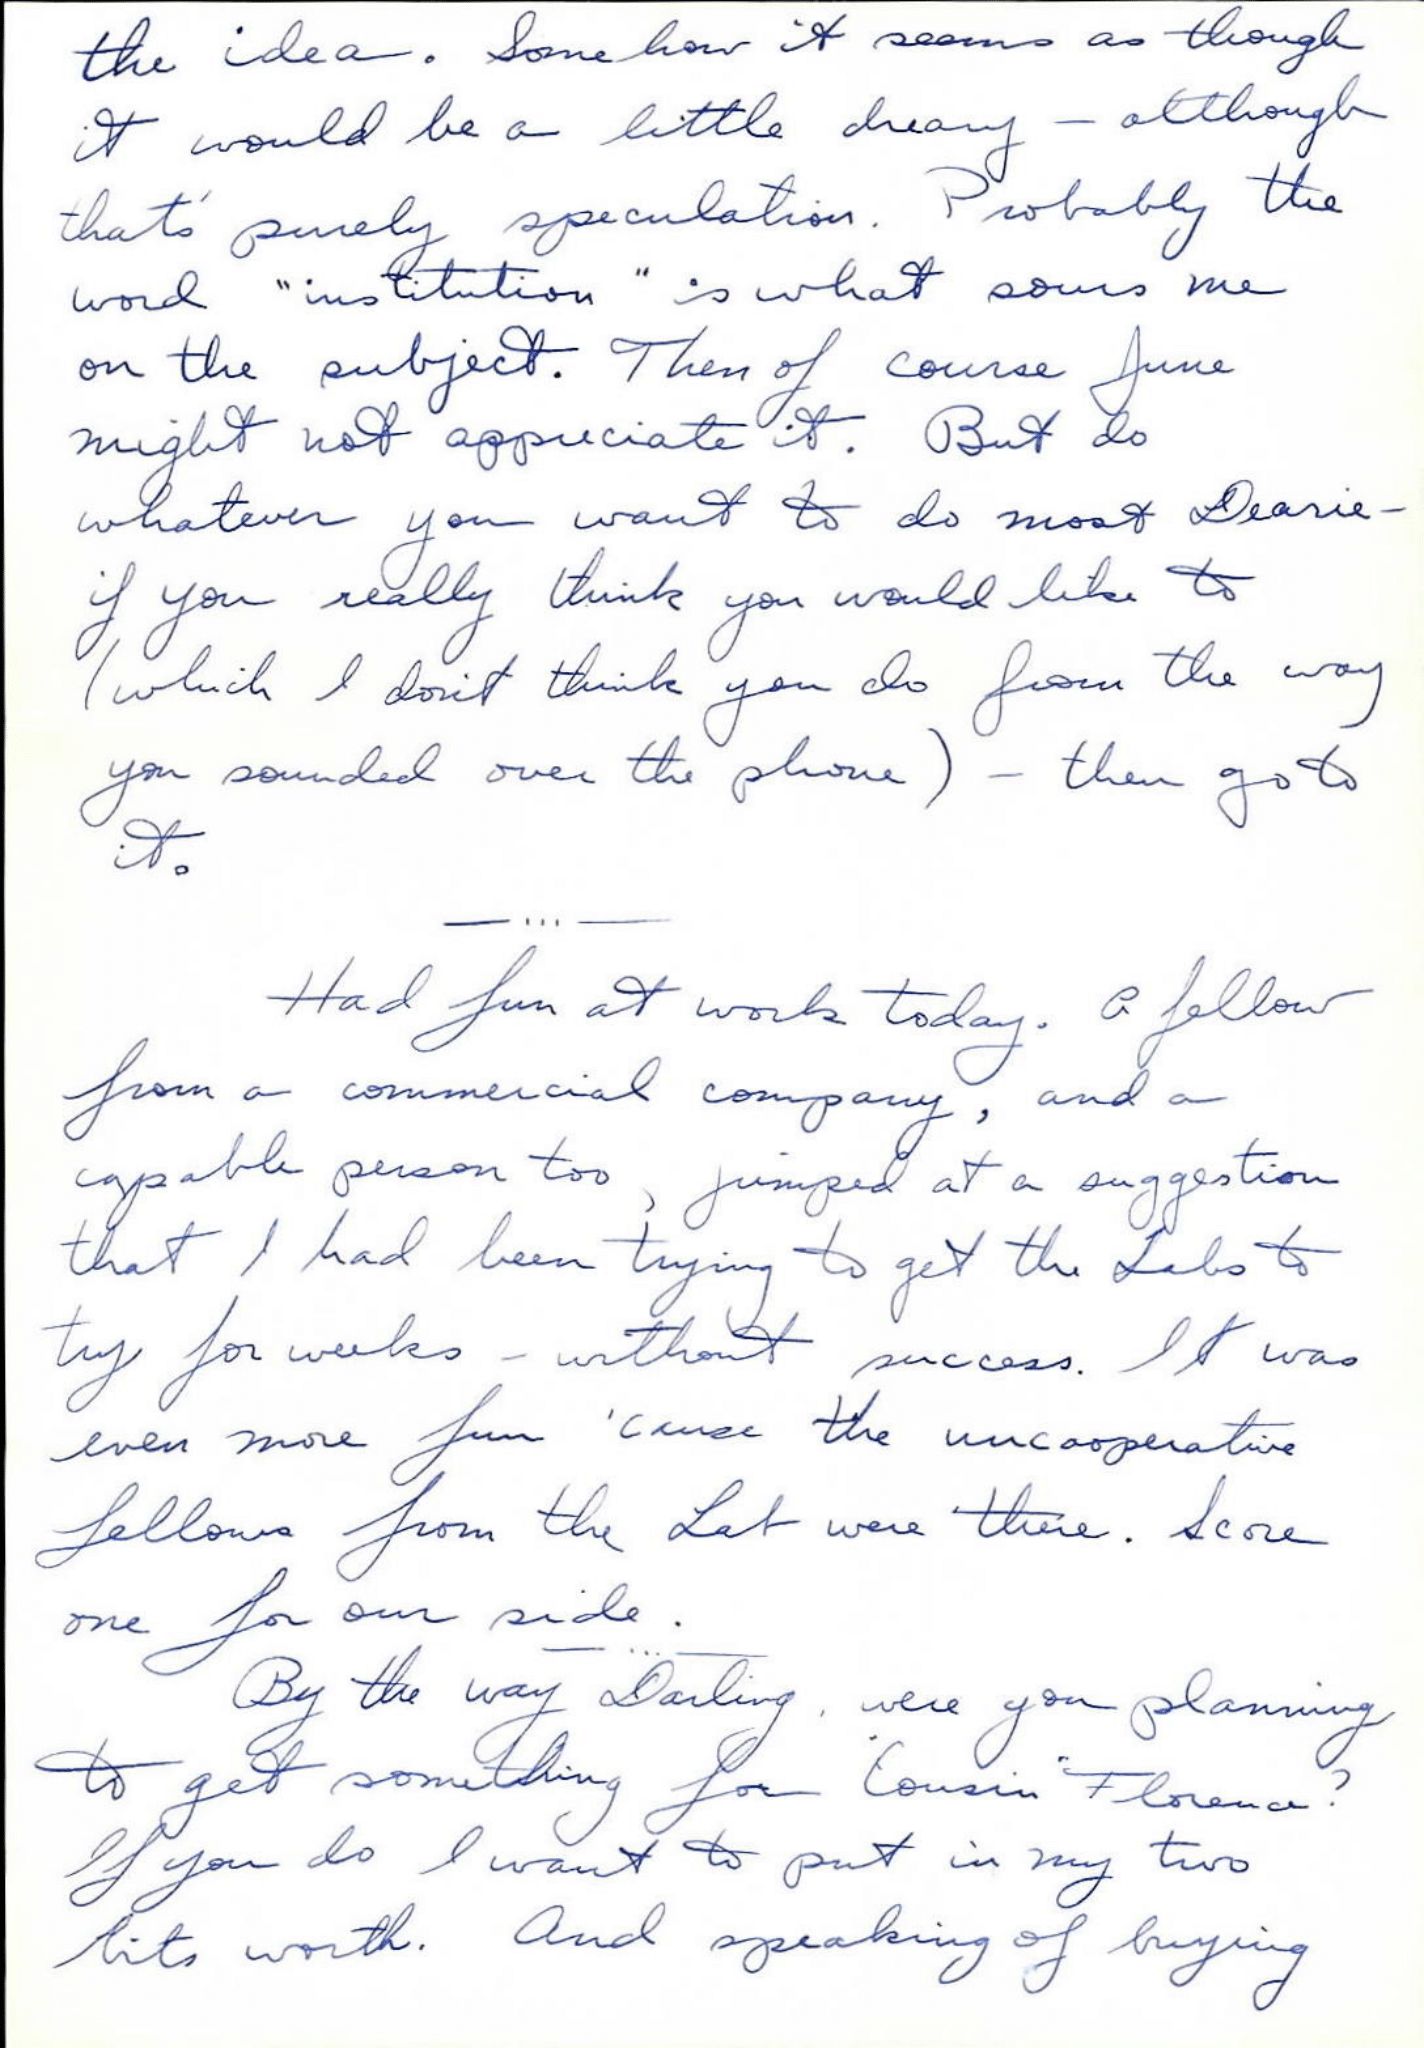 the idea. Somehow it seems as though
it would be a little dreary - although
that's purely speculation. Probably the
word "institution" is what sours me
on the subject. Then of course June
might not appreciate it. But do
whatever you want to do most Dearie -
if you really think you would like to
(which I don't think you do from the way
you sounded over the phone) - then go to
it.
— ... —
Had fun at work today. A fellow
from a commercial company, and a
capable person too, jumped at a suggestion
that I had been trying to get the Labs to
try for weeks - without success. It was
even more fun 'cause the uncooperative
fellows from the Lab were there. Score
one for our side.
— ... —
By the way Darling, were you planning
to get something for "Cousin" Florence?
If you do I want to put in my two
bits worth. And speaking of buying